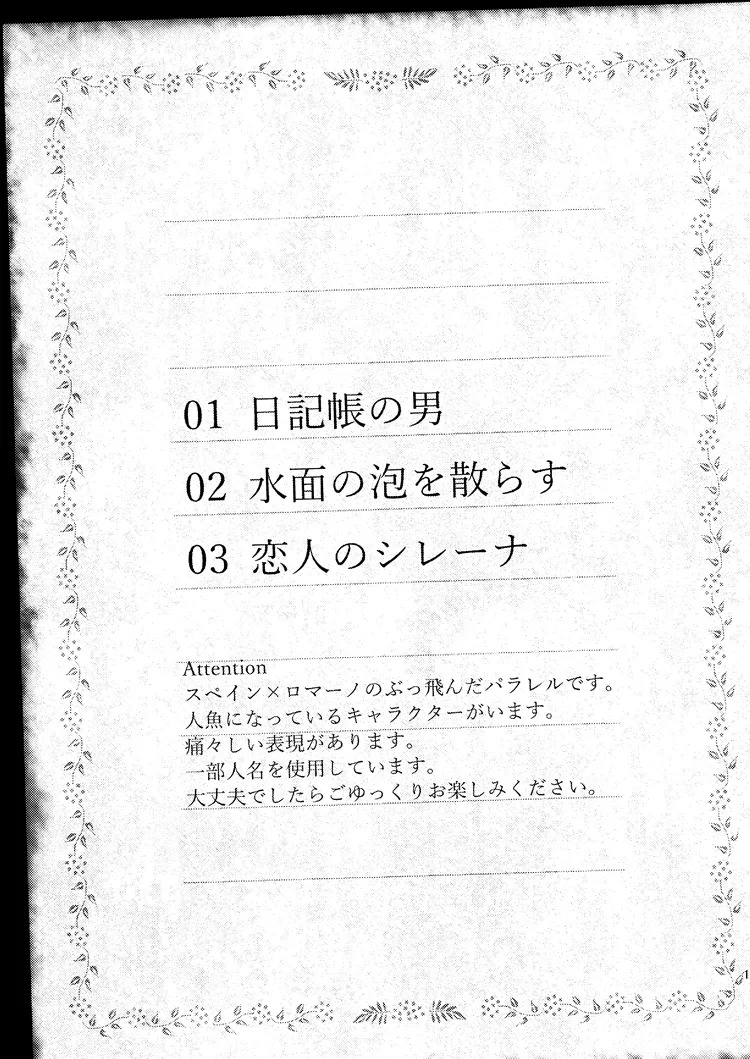 01 日記帳の男
02 水面の泡を散らす
03 恋人のシレーナ
Attention
スペイン×ロマーノのぶっ飛んだパラレルです。
人魚になっているキャラクターがいます。
痛々しい表現があります。
一部人名を使用しています。
大丈夫でしたらごゆっくりお楽しみください。